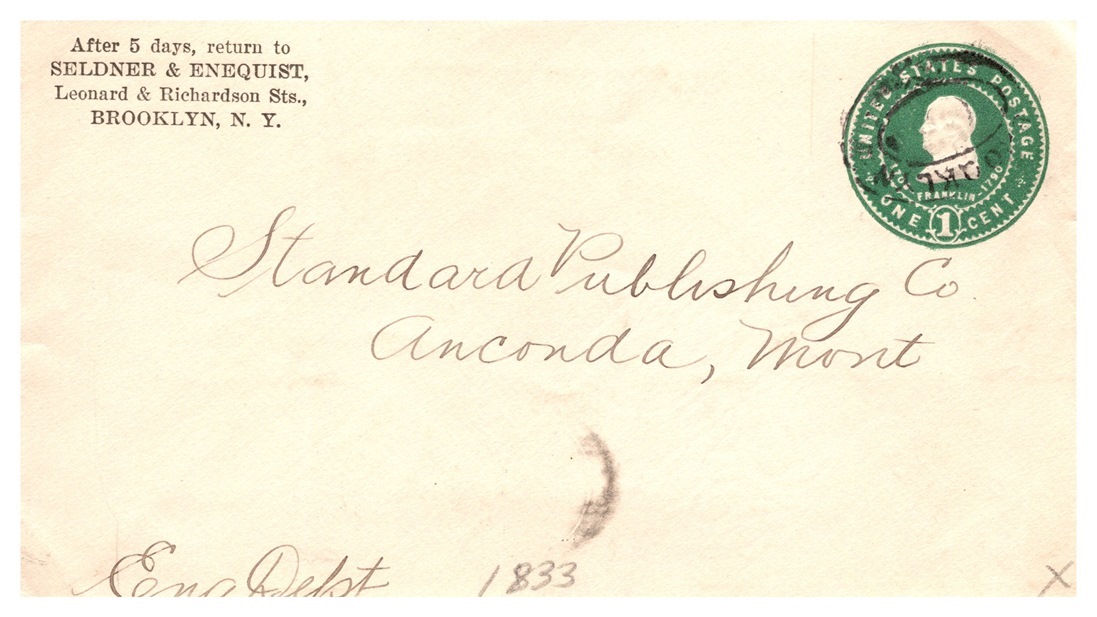 After 5 days, return to
SELDNER & ENEQUIST,
Leonard & Richardson Sts.,
BROOKLYN, N. Y.
UNITED STATES POSTAGE
FRANKLIN-1790
ONE 1 CENT
Standard Publishing Co
Anconda, Mont
Eng Dept
1833
X